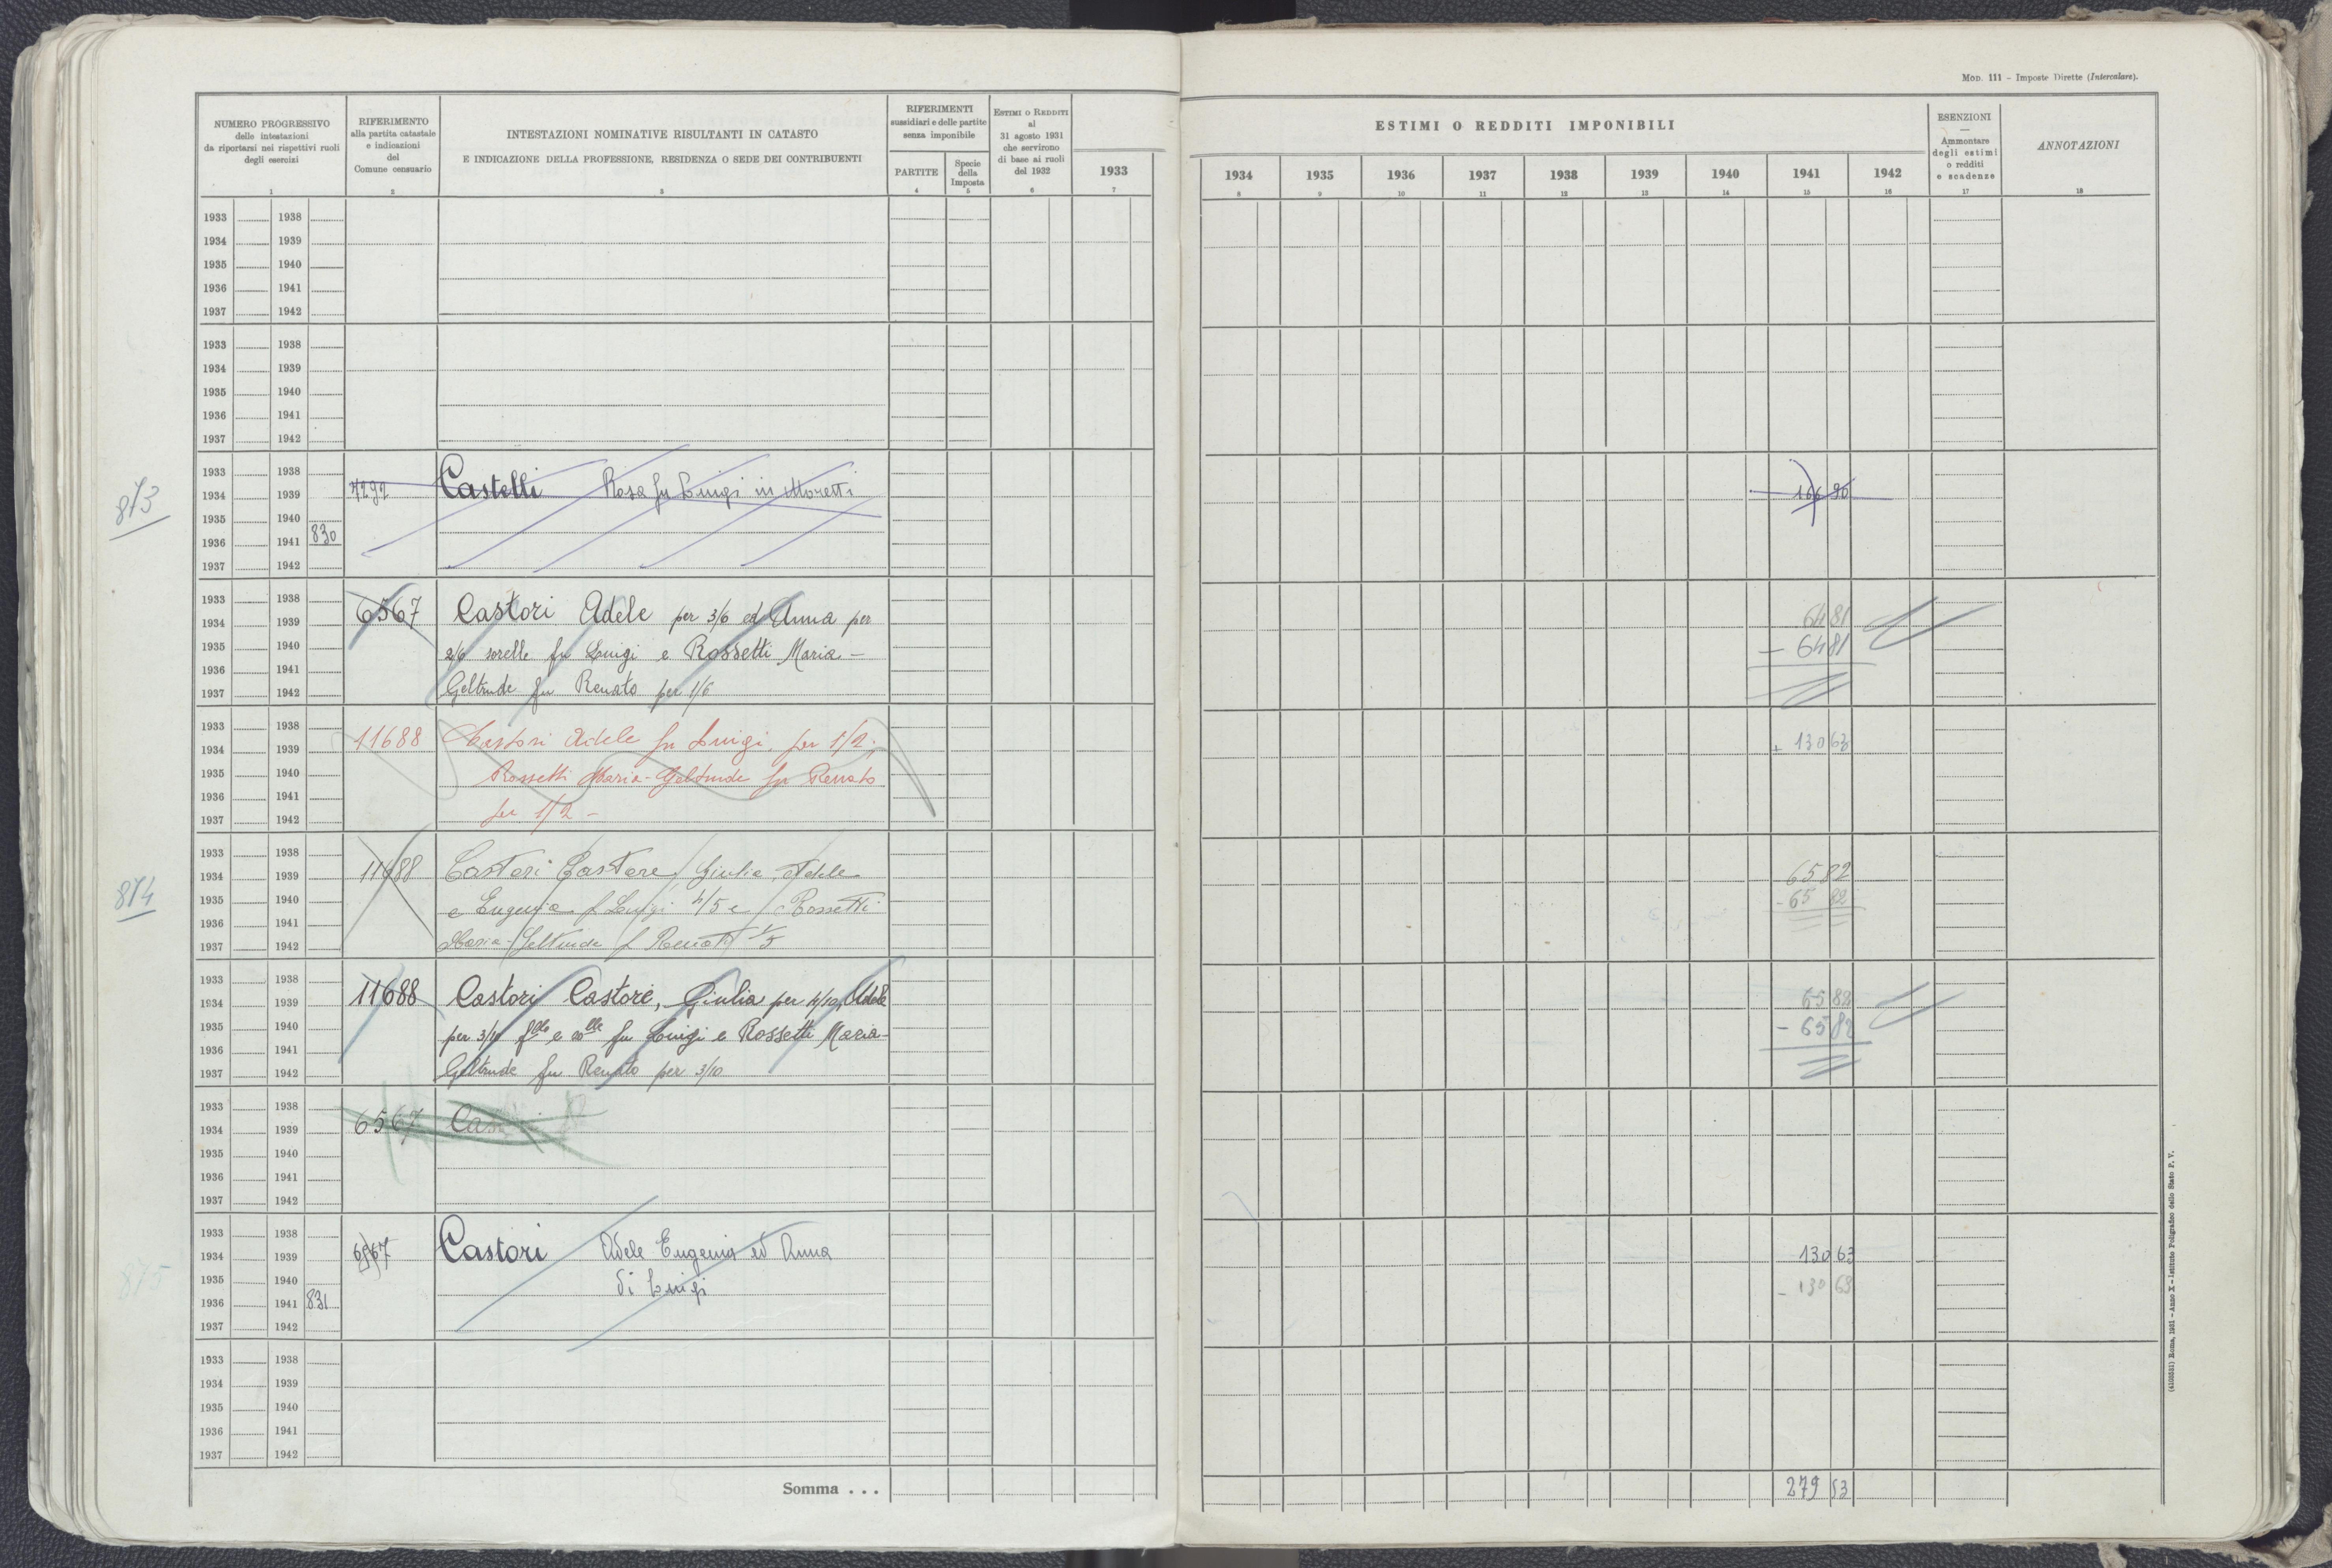 MOD. 111 – Imposte Dirette (Intercalare).
NUMERO PROGRESSIVO
delle intestazioni
da riportarsi nei rispettivi ruoli
degli esercizi
1
RIFERIMENTO
alla partita catastale
e indicazioni
del
Comune censuario
2
INTESTAZIONI NOMINATIVE RISULTANTI IN CATASTO
E INDICAZIONE DELLA PROFESSIONE, RESIDENZA O SEDE DEI CONTRIBUENTI
3
RIFERIMENTI
sussidiari e delle partite
senza imponibile
PARTITE
4
Specie
della
Imposta
5
ESTIMI O REDDITI
al
31 agosto 1931
che servirono
di base ai ruoli
del 1932
6
1933
7
ESTIMI O REDDITI IMPONIBILI
1934 1935 1936 1937 1938 1939 1940 1941 1942
8 9 10 11 12 13 14 15 16
ESENZIONI
—
Ammontare
degli estimi
o redditi
e scadenze
17
ANNOTAZIONI
18
1933 1938
1934 1939
1935 1940
1936 1941
1937 1942
1933 1938
1934 1939
1935 1940
1936 1941
1937 1942
873
1933 1938
1934 1939 7292 Castelli Rosa fu Luigi in Moretti 166 90
1935 1940
1936 1941 830
1937 1942
1933 1938
1934 1939 6567 Castori Adele per 3/6 ed Anna per 64 81
1935 1940 2/6 sorelle fu Luigi e Rossetti Maria – – 64 81
1936 1941
1937 1942 Geltrude fu Renato per 1/6
1933 1938
1934 1939 11688 Castori Adele fu Luigi per 1/2; + 130 63
1935 1940 Rossetti Maria-Geltrude fu Renato
1936 1941
1937 1942 per 1/2 –
874
1933 1938
1934 1939 11688 Castori Castore, Giulia, Adele 65 82
1935 1940 e Eugenia f Luigi 4/5 e Rossetti - 65 82
1936 1941
1937 1942 Maria-Geltrude f Renato 1/5
1933 1938
1934 1939 11688 Castori Castore, Giulia per 4/10, Adele 65 82
1935 1940 per 3/10 flli e slle fu Luigi e Rossetti Maria- – 65 82
1936 1941
1937 1942 Geltrude fu Renato per 3/10
1933 1938
1934 1939 6567 Cas
1935 1940
1936 1941
1937 1942
875
1933 1938
1934 1939 6567 Castori Adele Eugenia ed Anna 130 63
1935 1940 di Luigi – 130 63
1936 1941 831
1937 1942
1933 1938
1934 1939
1935 1940
1936 1941
1937 1942
Somma . . . 279 53
(410331) Roma, 1931 – Anno X – Istituto Poligrafico dello Stato P. V.